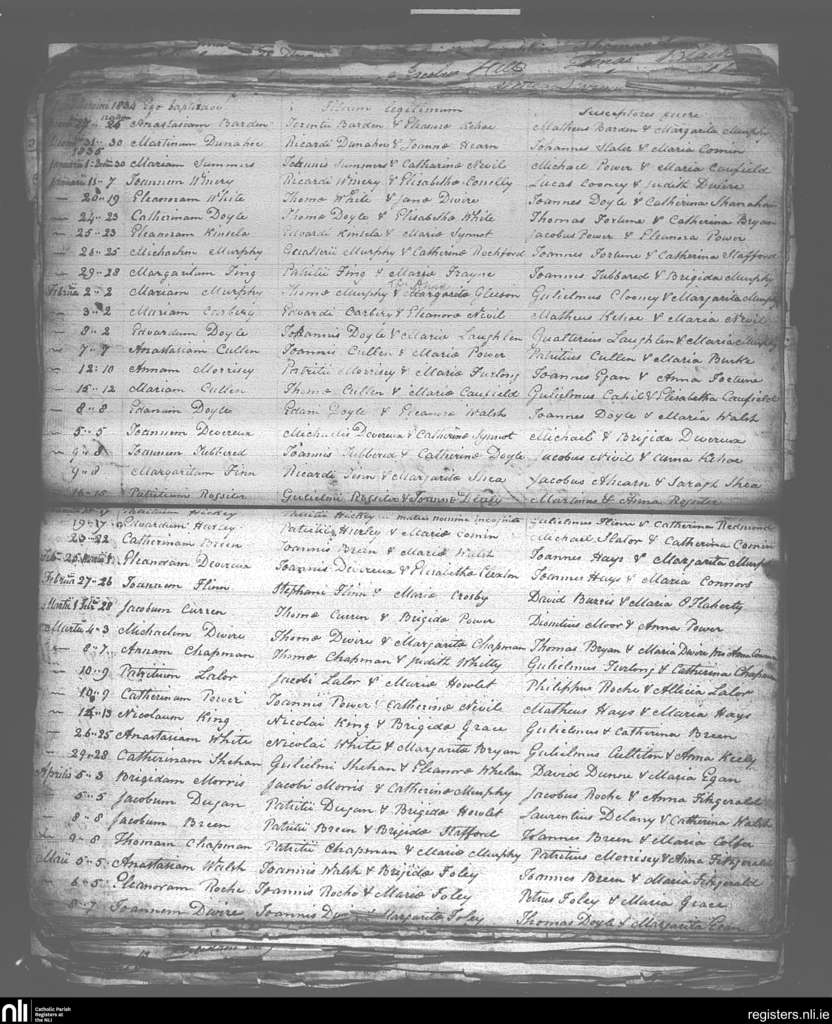 1834 Ego baptizavi Filium legitimum Susceptores fuere
27 .. 26 Anastasiam Barden Terentii Barden & Eleanoræ Kehoe Matheus Barden & Margarita Murphy
31 .. 30 Martinum Dunahoe Ricardi Dunahoe & Joannæ Hearn Johannes Slator & Maria Comin
1835
Januarii 1: 30 Mariam Summers Joannis Summers & Catharinæ Nevil Michael Power & Maria Caufield
Januarii 11 .. 7 Joannem Winery Ricardi Winery & Elisabethæ Conolly Lucas Cooney & Judith Dwire
— 20 .. 19 Eleanoram White Thomæ White & Janæ Dwire Joannes Doyle & Catherina Shanahan
— 24 .. 23 Catherinam Doyle Thomæ Doyle & Elisabethæ White Thomas Fortune & Catherina Bryan
— 25 .. 23 Eleanoram Kinsela Edvardi Kinsela & Mariæ Synnot Jacobus Power & Eleanora Power
— 26 .. 25 Michaelem Murphy Gualterii Murphy & Catherinæ Rochford Joannes Fortune & Catherina Stafford
— 29 .. 28 Margaritam Fing Patritii Fing & Mariæ Frayne Joannes Tubbared & Brigida Murphy
2 .. 2 Mariam Murphy Thomæ Murphy & Margaritæ Gleeson Gulielmus Clooney & Margarita Murphy
— 3 .. 2 Mariam Carbery Edvardi Carbery & Eleanoræ Nevil Matheus Kehoe & Maria Nevil
— 8 .. 2 Edvardum Doyle Johannis Doyle & Mariæ Laughlen Gualterius Laughlen & Maria Murphy
— 7 .. 7 Anastasiam Cullen Joannis Cullen & Mariæ Power Patritius Cullen & Maria Burke
— 12: 10 Annam Morrisey Patritii Morrisey & Mariæ Furlong Joannes Egan & Anna Fortune
— 15 .. 12 Mariam Cullen Thomæ Cullen & Mariæ Caufield Gulielmus Cahil & Elisabetha Caufield
— 8 .. 8 Edanum Doyle Edani Doyle & Eleanoræ Walsh Joannes Doyle & Maria Walsh
— 5 .. 5 Joannem Devereux Michaelis Devereux & Catherinæ Synnot Michael & Brigida Devereux
— 9 .. 8 Joannem Tubbered Joannis Tubbered & Catherinæ Doyle Jacobus Nivil & Anna Kehoe
— 9 .. Margaritam Finn Ricardi Finn & Margaritæ Shea Jacobus Ahearn & Saragh Shea
16 .. 15 Patritium Rossiter Gulielmi Rossiter & Joannæ Martinus & Anna Rossiter
Hickey Hickey matris nomine incognita Gulielmus Flinn & Catherina Redmond
19 .. 17 Edvardum Hurley Patritii Hurley & Mariæ Comin Michael Slator & Catherina Comin
— 23 .. 22 Catherinam Breen Joannis Breen & Mariæ Walsh Joannes Hays & Margarita Murphy
25 Eleanoram Devereux Joannis Devereux & Elisabethæ Joannes Hays & Maria Connors
27 .. 26 Joannem Flinn Stephani Flinn & Mariæ Crosby David Burris & Maria O'Flaherty
Martii 1 28 Jacobum Curren Thomæ Curren & Brigidæ Power Dionitius Moor & Anna Power
Martii 4 .. 3 Michaelem Dwire Thomæ Dwire & Margaritæ Chapman Thomas Bryan & Maria Dwire
— 8 .. 7 Annam Chapman Thomæ Chapman & Judith Whitty Gulielmus Furlong & Catherina Chapman
— 10 .. 9 Patritium Lalor Jacobi Lalor & Mariæ Howlet Philippus Roche & Allicia Lalor
— 10 .. 9 Catherinam Power Joannis Power & Catherinæ Nevile Matheus Hays & Maria Hays
— 14 .. 13 Nicolaum King Nicolai King & Brigidæ Grace Gulielmus & Catherina Breen
— 26 .. 25 Anastasiam White Nicolai White & Margaritæ Bryan Gulielmus Culliton & Anna Kiely
— 29 .. 28 Catherinam Shehan Gulielmi Shehan & Eleanoræ Whelan David Dunne & Maria Egan
Aprilis 5 .. 3 Brigidam Morris Jacobi Morris & Catherinæ Murphy Jacobus Roche & Anna Fitzgerald
— 5 .. 5 Jacobum Dugan Patritii Dugan & Brigidæ Howlet Laurentius Delany & Catherina Walsh
— 8 .. 8 Jacobum Breen Patritii Breen & Brigidæ Stafford Joannes Breen & Maria Colfer
— 9 .. 8 Thomam Chapman Patritii Chapman & Mariæ Murphy Patritius Morrisey & Anna Fitzgerald
Maii 5 .. 5 Anastasiam Walsh Joannis Walsh & Brijidæ Foley Joannes Breen & Maria Fitzgerald
— 6 .. 5 Eleanoram Roche Joannis Roche & Mariæ Foley Petrus Foley & Maria Grace
8 .. 7 Joannem Dwire Joannis & Margaritæ Foley Thomas Doyle & Margarita
nli Catholic Parish Registers at the NLI
registers.nli.ie